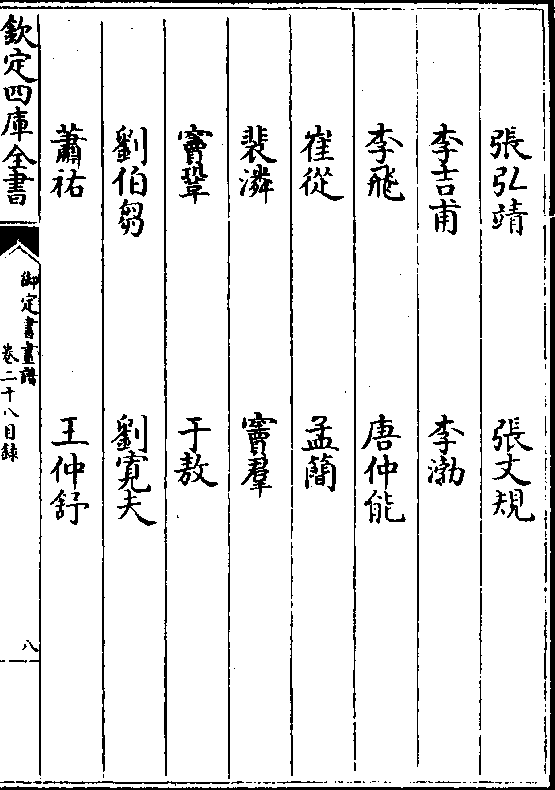 張弘靖 張文規
李吉甫 李渤
李飛 唐仲能
崔從 孟簡
裴潾 竇羣
竇鞏 于敖
劉伯芻 劉寬夫
蕭祐 王仲舒
欽定四庫全書
御定書畫譜
卷二十八目錄
八